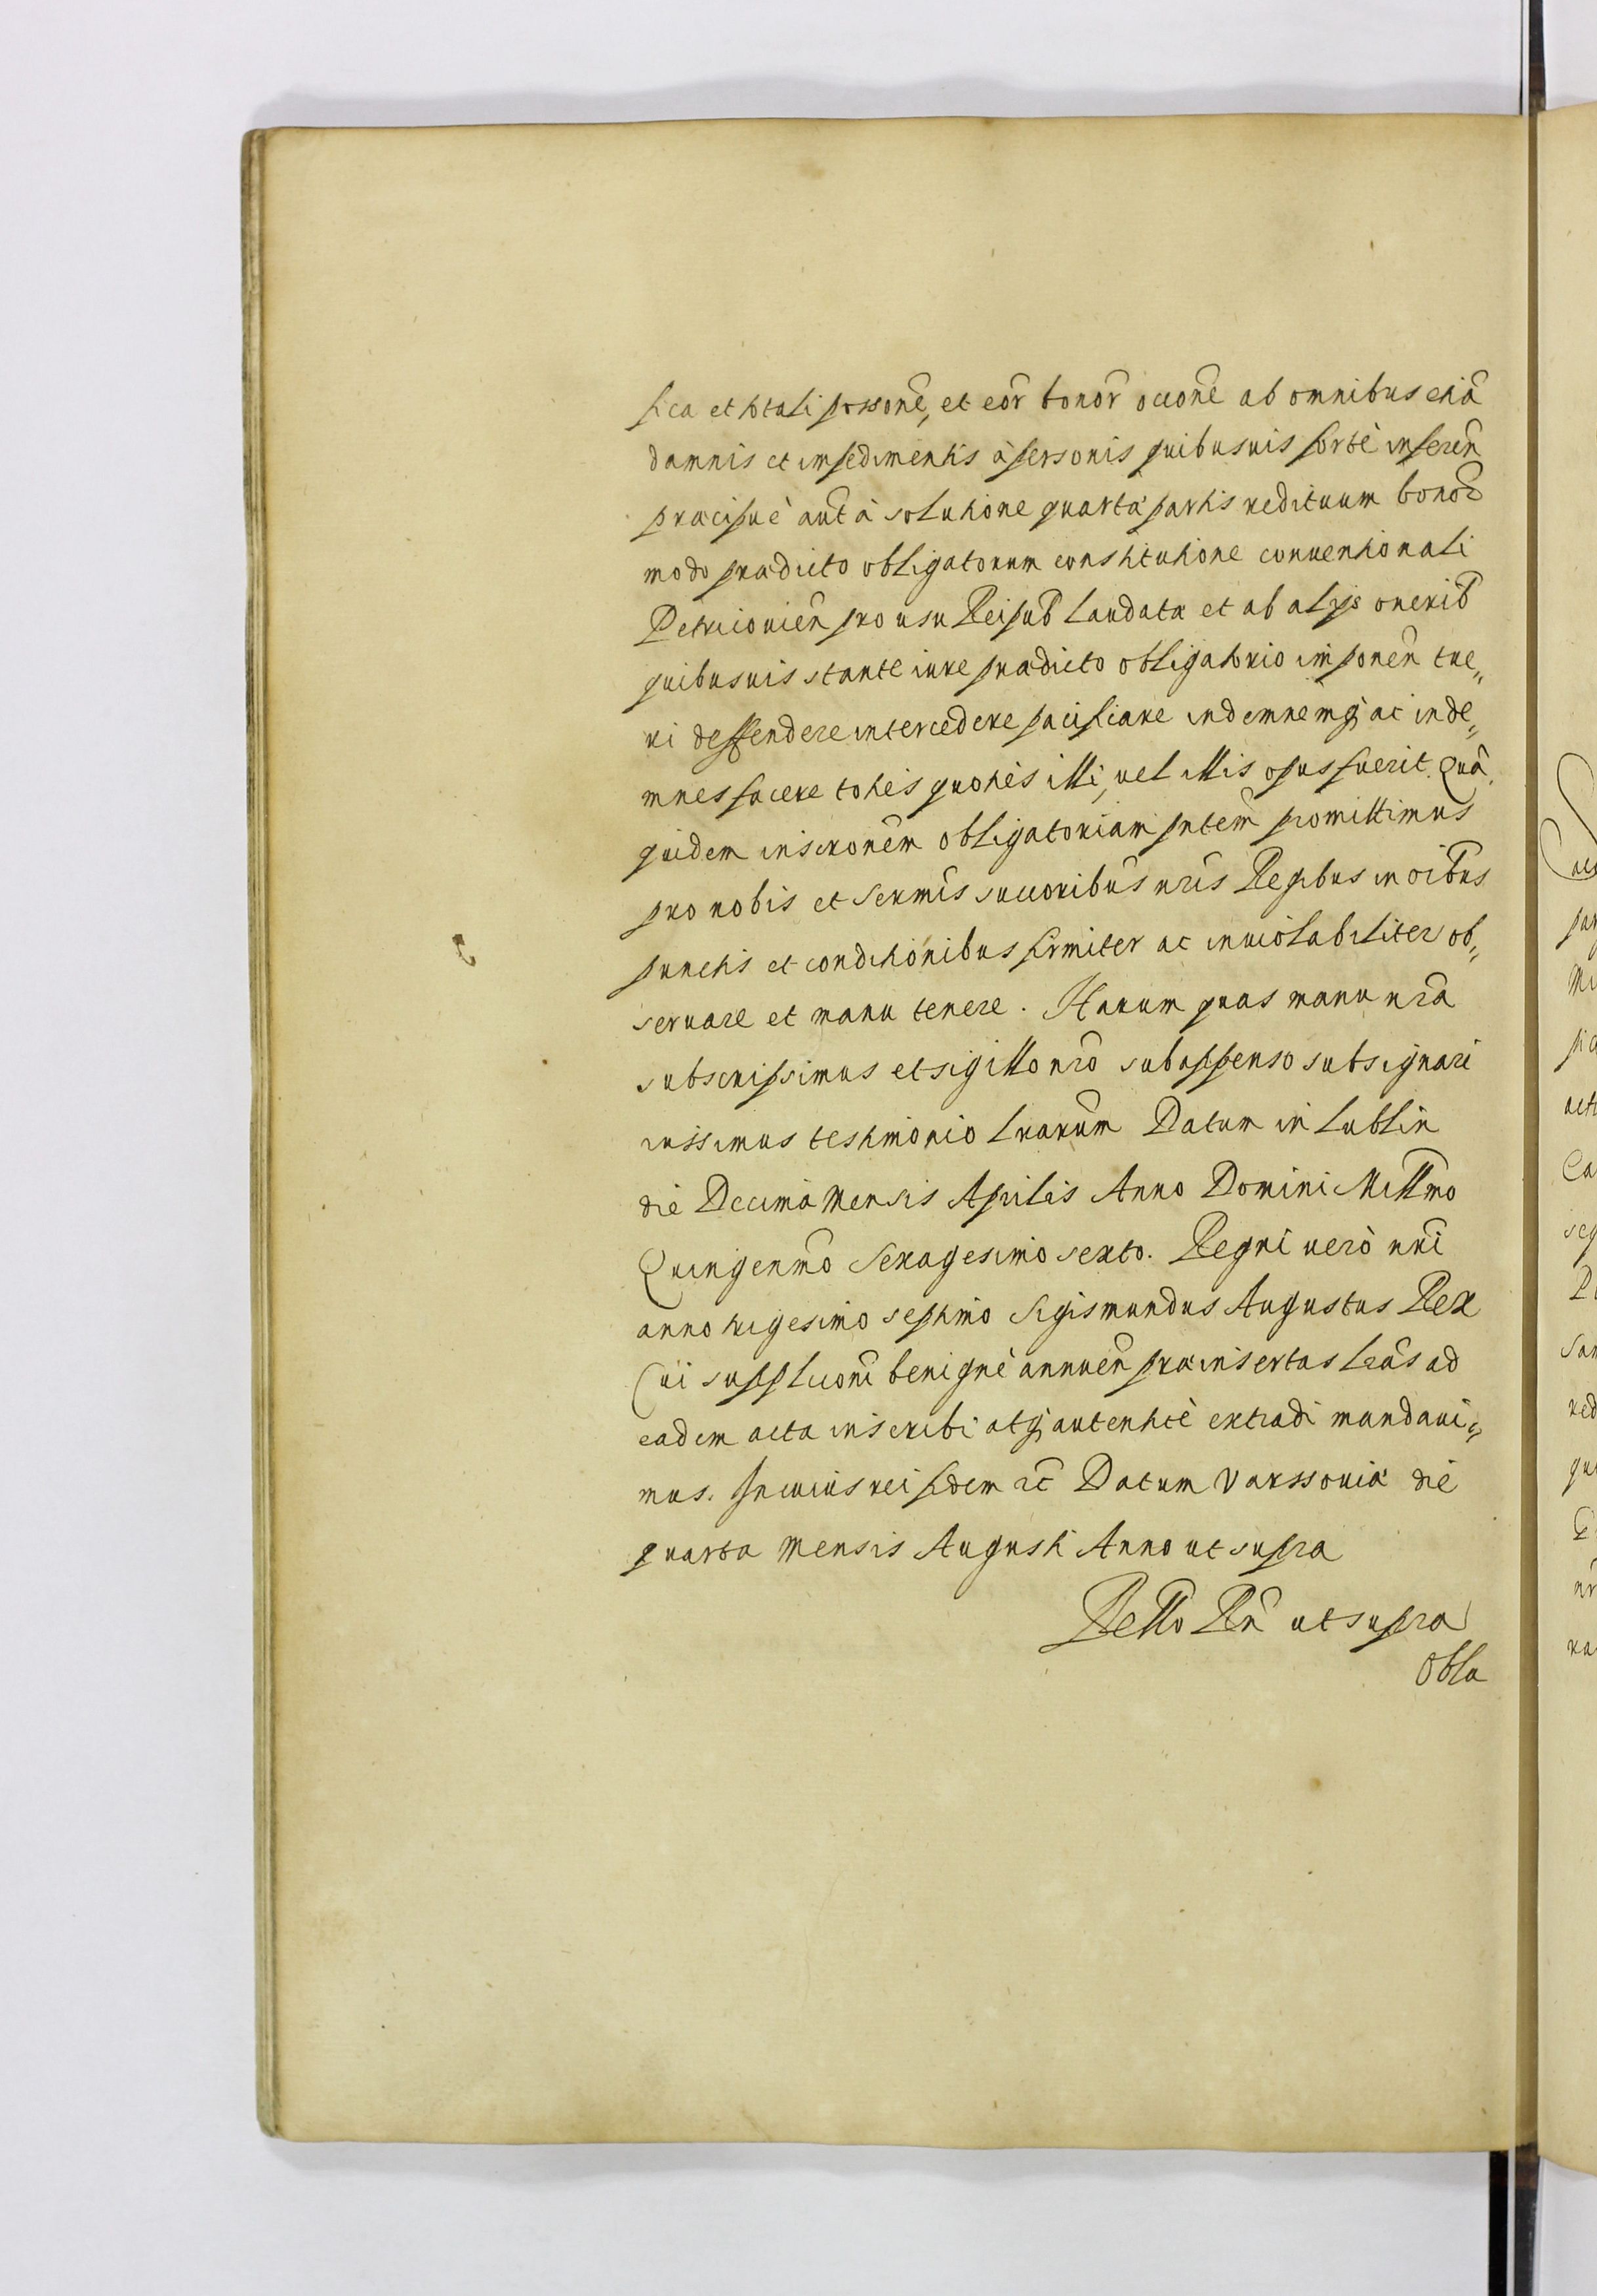 fica et totali possone, et eor bonor occone ab omnibus etiã
damnis et impedimentis à personis quibusuis fortè inferen
præcipuè aut à solutione quartæ partis redituum bonor
modo prædicto obligatorum constitutione conuentionali
Petricouien pro usu Reipub laudata et ab alijs onerib
quibusuis stante iure prædicto obligatorio imponen tue„
ri deffendere intercedere pacificare indemnemq3 ac inde„
mnes facere toties quoties illi, uel illis opus fuerit. Quã
quidem inscronem obligatoriam pntem promittimus
pro nobis et sermis succoribus nris Regibus in oibus
punctis et conditionibus firmiter ac inuiolabiliter ob„
seruare et manu tenere. Harum quas manu nra
subscripsimus et sigillo nro subappenso subsignari
iussimus testimonio lrarum Datum in Lublin
die Decima Mensis Aprilis Anno Domini Millmo
Quingenmo Sexagesimo sexto. Regni uerò nri
anno trigesimo septimo Sigismundus Augustus Rex
Cui suppliconi benignè annuen præinsertas lras ad
eadem acta inscribi atq3 autenticè extradi mandaui„
mus. In cuius rei fidem rc Datum Varssouiæ die
quarta Mensis Augusti Anno ut supra
Retto Rn ut supra
Obla